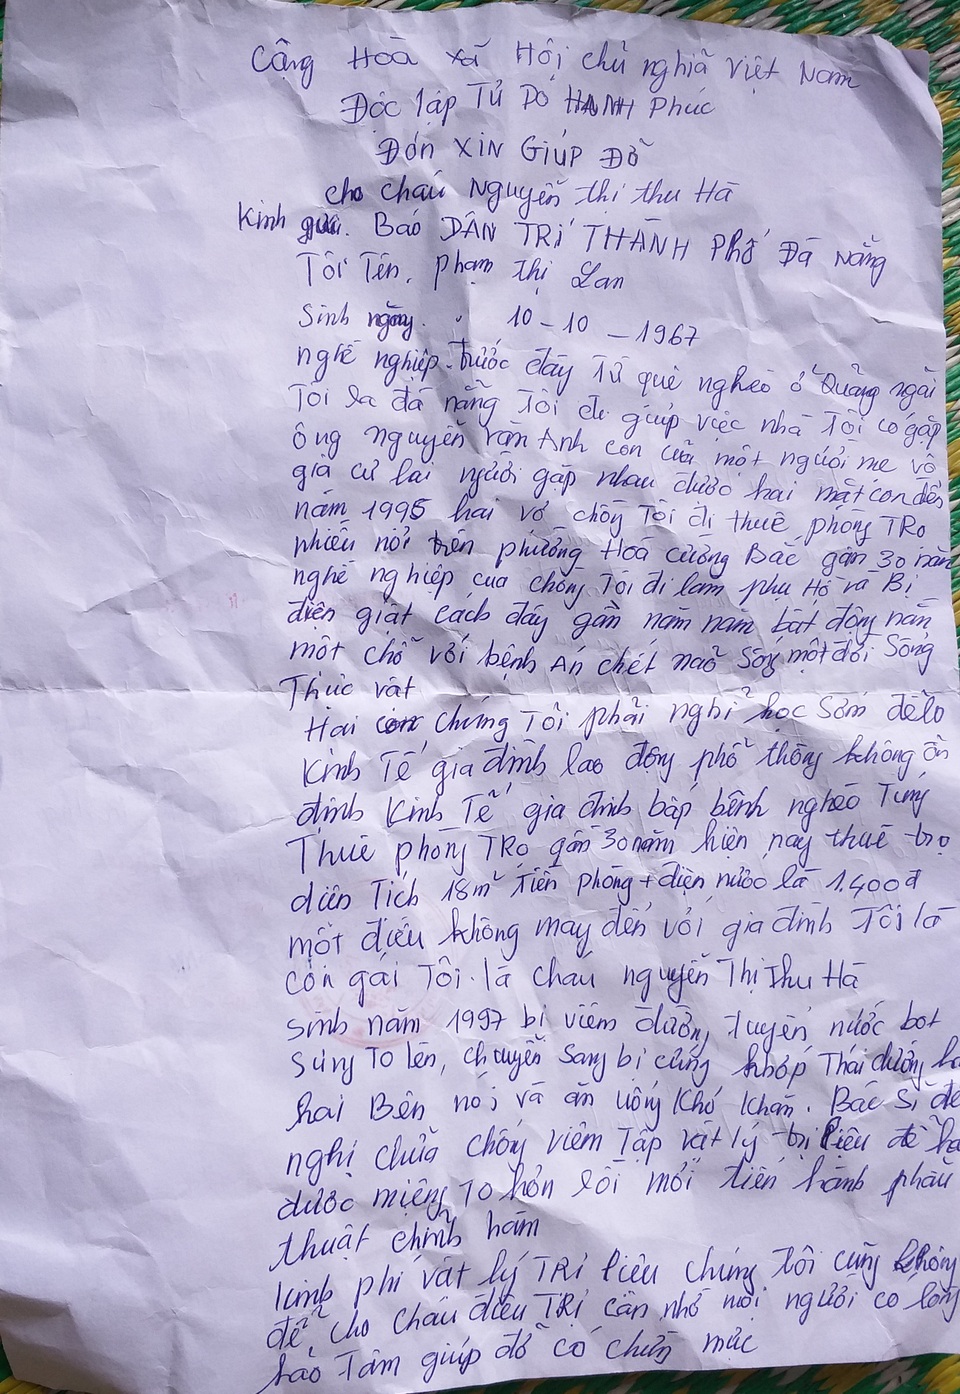 Cộng Hoà Xã Hội chủ nghĩa Việt Nam
Độc lập Tự Do HẠNH Phúc
Đơn XIN GIÚP ĐỠ
cho cháu Nguyễn thị thu Hà
Kính gửi. Báo DÂN TRÍ THÀNH PHỐ Đà Nẵng
Tôi Tên. Phạm thị Lan
Sinh ngày. 10 - 10 - 1967
nghề nghiệp trước đây Từ quê nghèo ở Quảng ngãi
Tôi ra đà nẵng Tôi đi giúp việc nhà Tôi có gặp
ông nguyễn văn Anh con của một người mẹ vô
gia cư lại người gặp nhau được hai mặt con đến
năm 1995 hai vợ chồng Tôi đi thuê phòng TRọ
nhiều nơi trên phường Hoà cường Bắc gần 30 năm
nghề nghiệp của chồng Tôi đi làm phụ Hồ và Bị
điện giật cách đây gần năm năm bất động nằm
một chỗ với bệnh Án chết não Sống một đời Sống
Thực vật
Hai con chúng Tôi phải nghỉ học Sớm để lo
Kinh Tế gia đình lao động phổ thông không ổn
định Kinh Tế gia đình bấp bênh nghèo Túng
Thuê phòng TRọ gần 30 năm hiện nay thuê trọ
diện Tích 18m² tiền phòng + điện nước là 1.400đ
một điều không may đến với gia đình Tôi là
con gái Tôi là cháu nguyễn Thị Thu Hà
Sinh năm 1997 bị viêm đường tuyến nước bọt
Sưng To lên, chuyển Sang bị cứng khớp Thái dương
hai Bên nói và ăn uống Khó Khăn. Bác Sĩ đề
nghị chữa chống viêm Tập vật lý trị liệu để
được miệng To hơn rồi mới tiến hành phẫu
thuật chỉnh hàm
kinh phí vật lý TRị liệu chúng tôi cũng không
để cho cháu điều TRị cần nhờ mọi người có lòng
hảo Tâm giúp đỡ có chừng mực